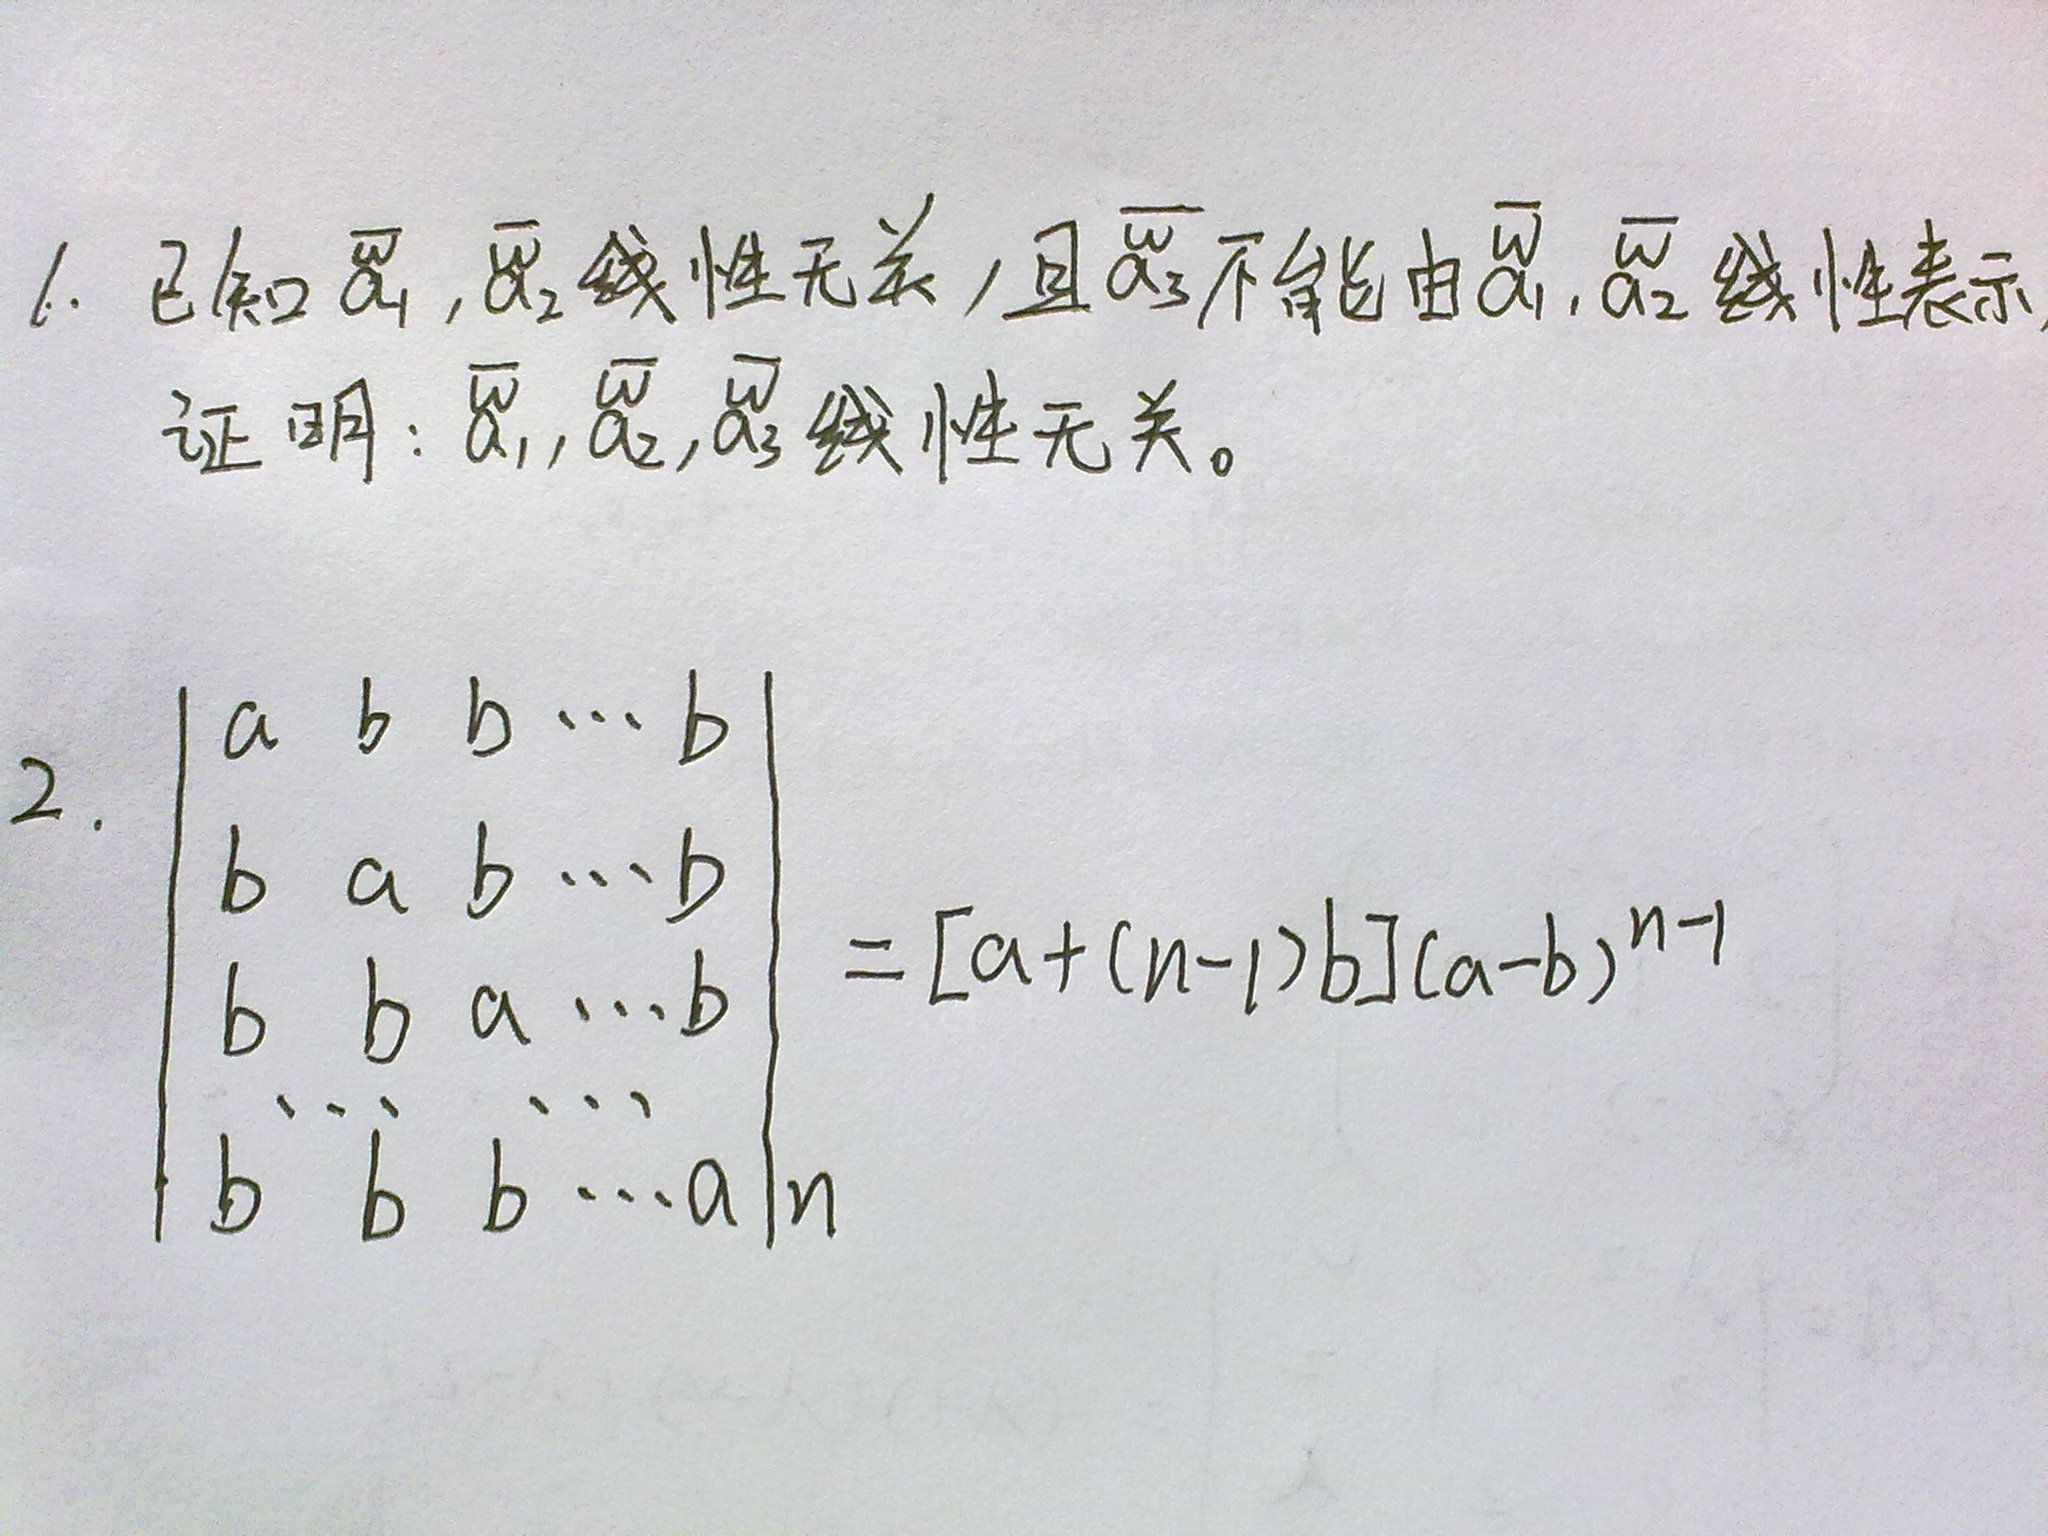 1. 已知 a̅₁, a̅₂ 线性无关, 且 a̅₃ 不能由 a̅₁, a̅₂ 线性表示,
证明: a̅₁, a̅₂, a̅₃ 线性无关。
2.
a b b … b
b a b … b
b b a … b
… …
b b b … a n
= [a+(n-1)b](a-b)ⁿ⁻¹